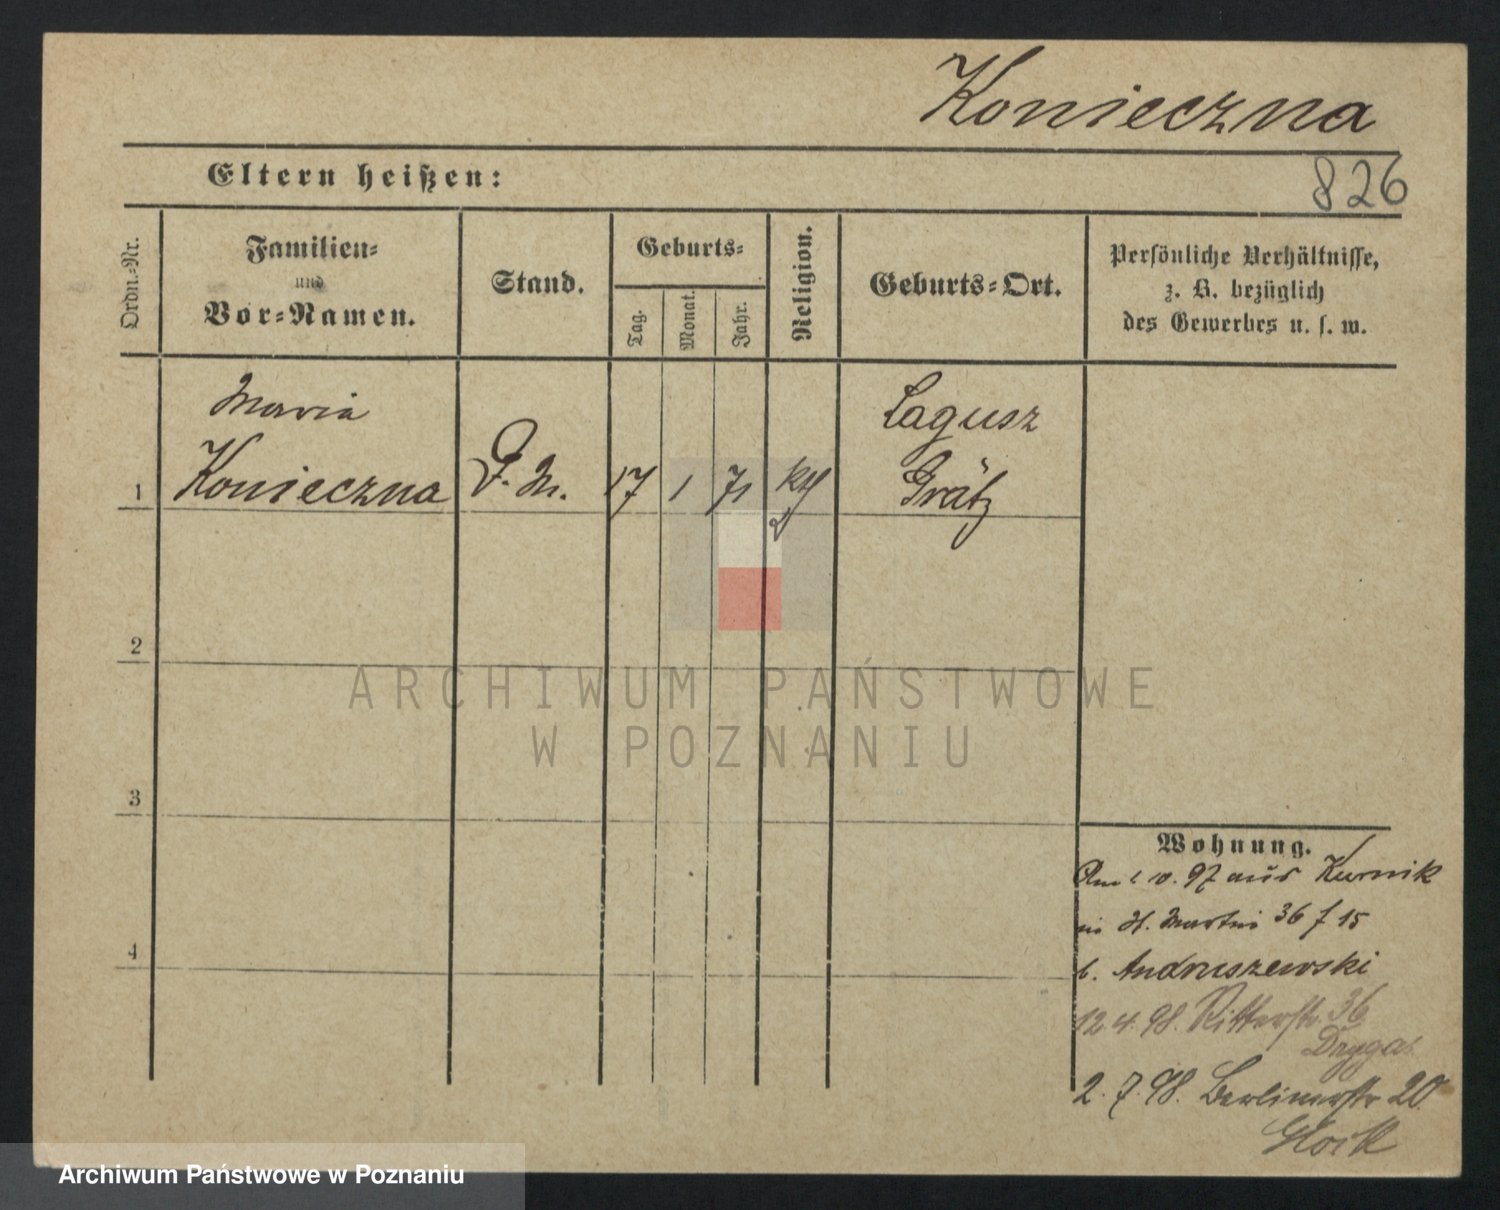 Konieczna
Eltern heißen:
826
Ordn.-Nr.
Familien-
und
Vor-Namen.
Stand.
Geburts-
Tag.
Monat.
Jahr.
Religion.
Geburts-Ort.
Persönliche Verhältnisse,
z. B. bezüglich
des Gewerbes u. s. w.
1
Maria
Konieczna
D. M.
17
1
71
kth
Lagusz
Grätz
2
3
4
ARCHIWUM PAŃSTWOWE
W POZNANIU
Wohnung.
Am 97 aus Kurnik
in St. Martin 36 15
b. Andruszewski
12 4. 98. Ritterstr. 36
Dryga
2. 7. 98. Berlinerstr 20
Archiwum Państwowe w Poznaniu